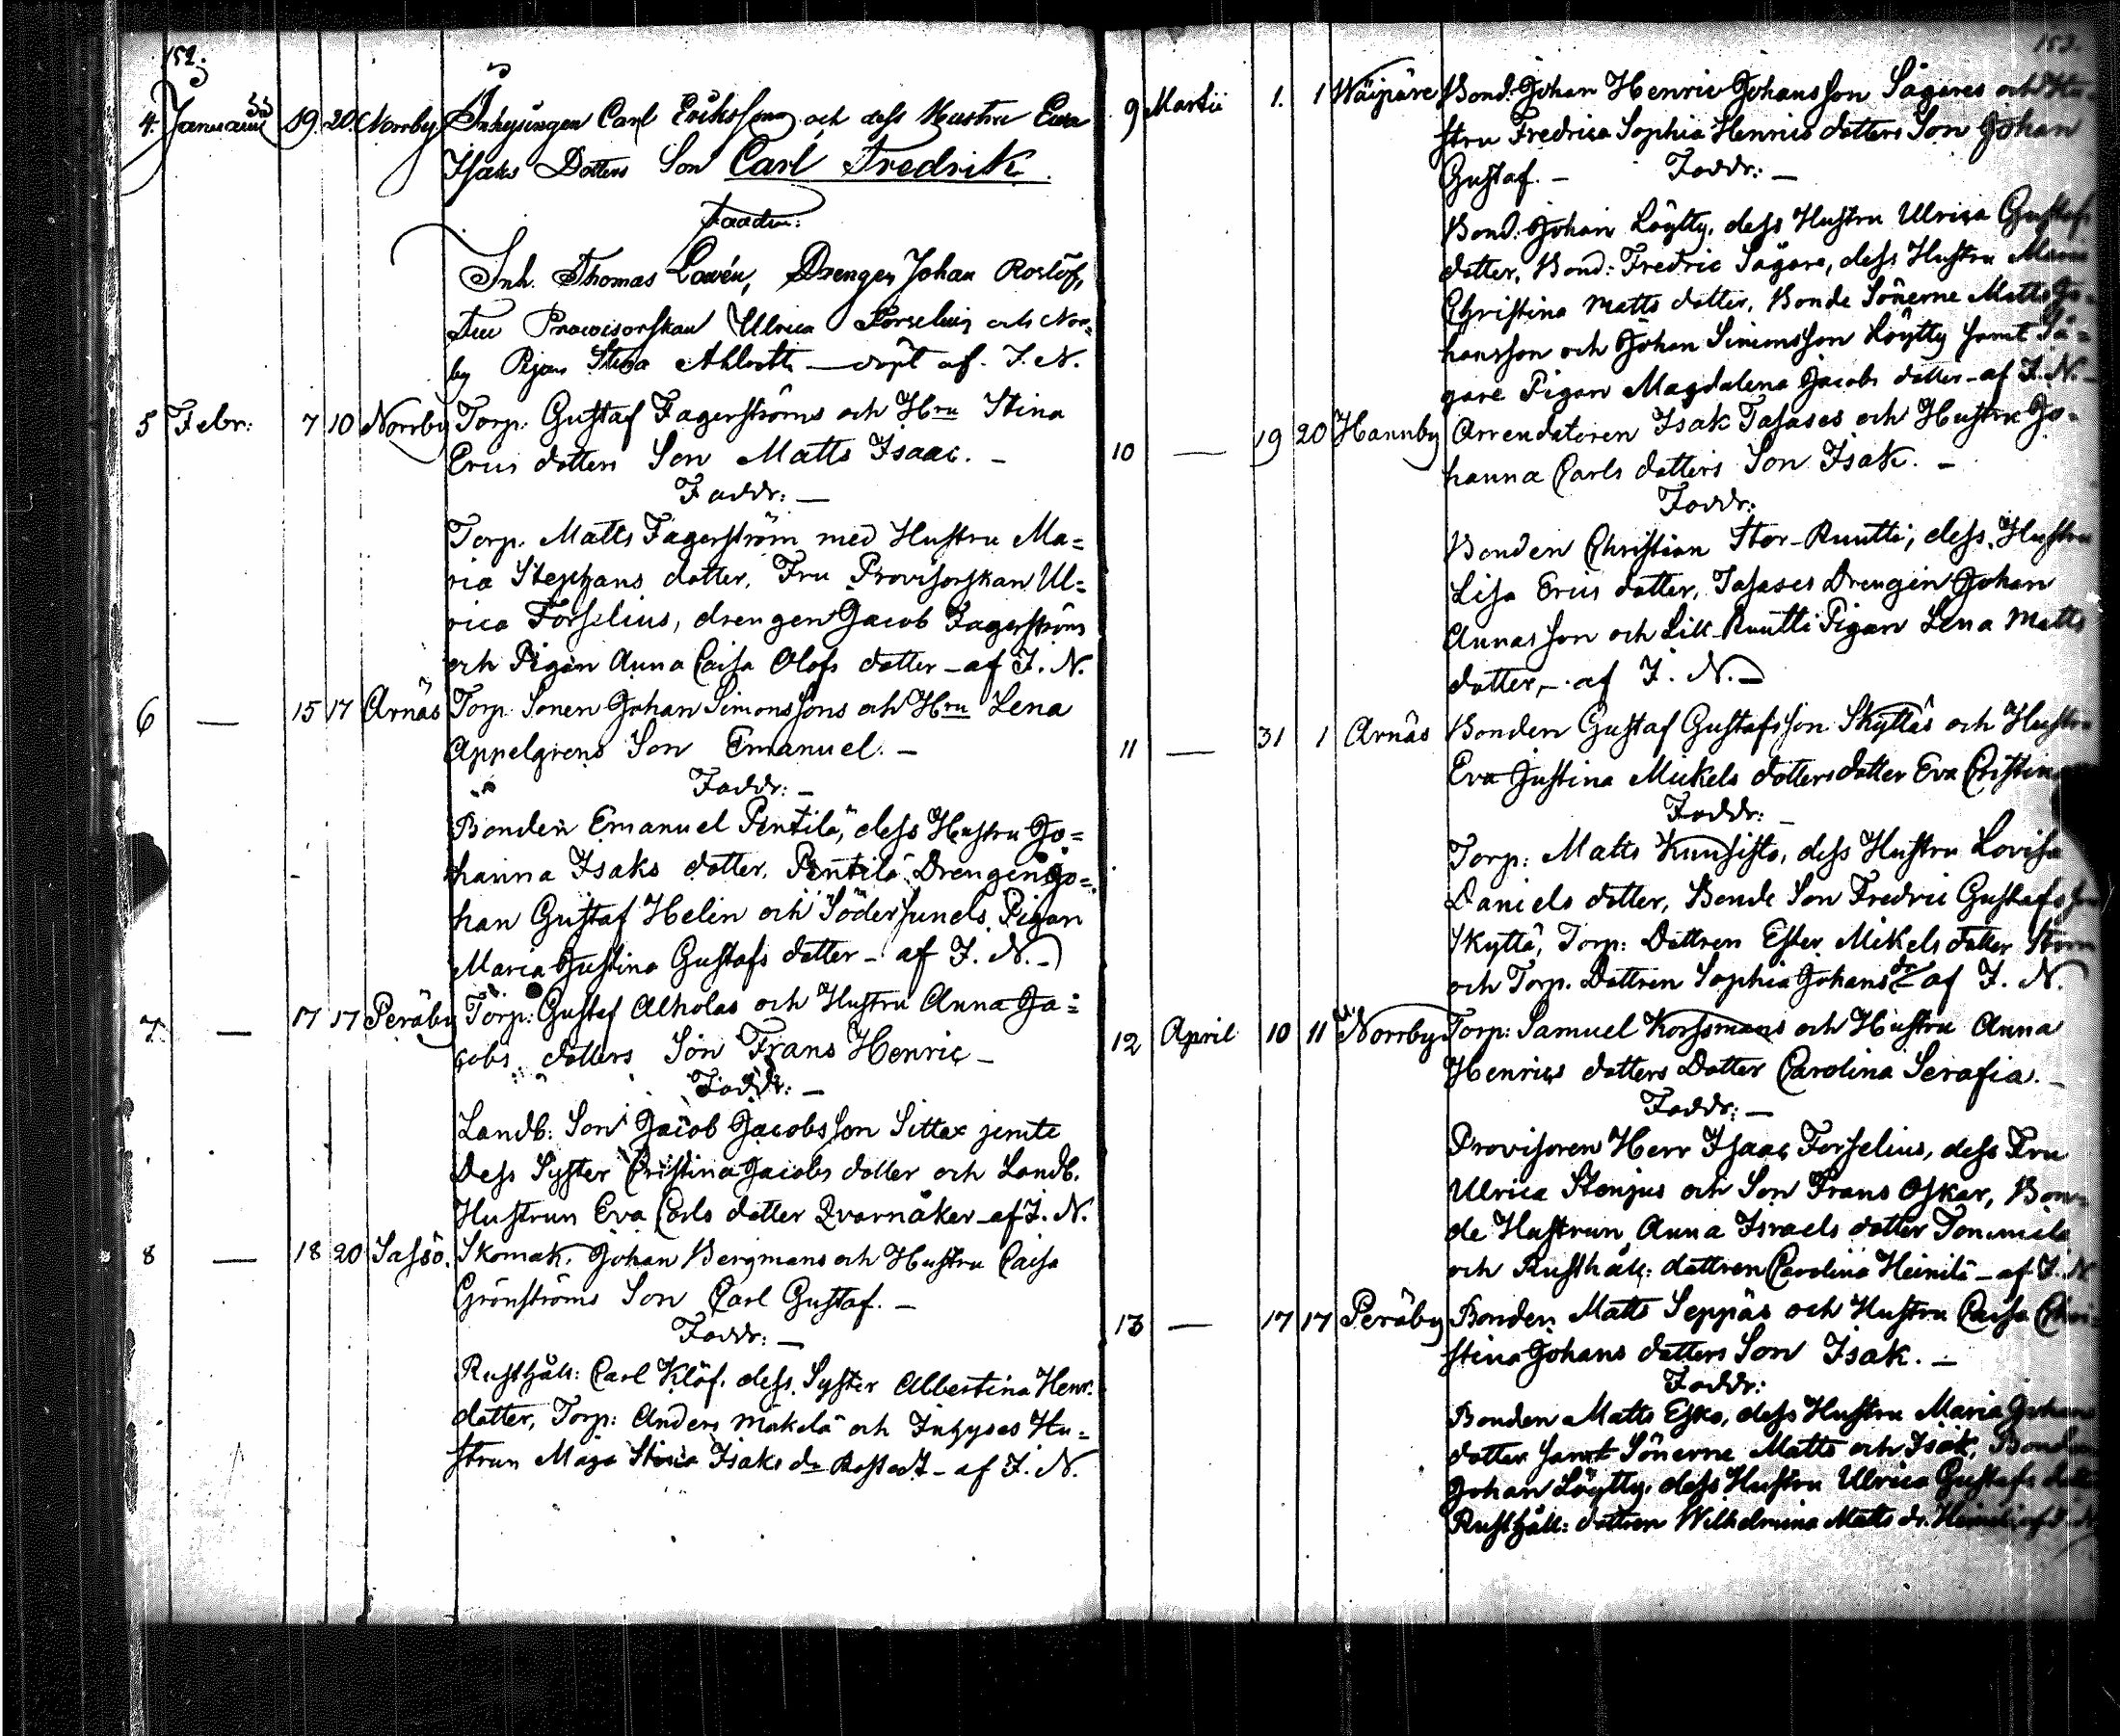 152.
4. Januarii 19. 20. Norrby Inhysingen Carl Erikssons och dess Hustru Eva
Isaks Dotters Son Carl Fredrik.
Faddr:
Inh. Thomas Lovén, Drengen Johan Roslöf,
Fru Provisorskan Ulrica Forselius och Nor=
by Pigan Stina — döpt af J. N.
5 Febr: 7 10 Norrby Torp. Gustaf Fagerströms och Hru Stina
Erics dotters Son Matts Isaac. —
Faddr: —
Torp. Matts Fagerström med Hustru Ma=
ria Stephans dotter, Fru Provisorskan Ul=
rica Forselius, drengen Jacob Fagerström
och Pigan Anna Caisa Olofs dotter — af J. N.
6 — 15 17 Arnäs Torp. Sonen Johan Simonssons och Hru Lena
Appelgrens Son Emanuel. —
Faddr: —
Bonden Emanuel Pentilä, dess Hustru Jo=
hanna Isaks dotter, Pentilä Drengen Jo=
han Gustaf Helin och Södersunds Pigan
Maria Justina Gustafs dotter — af J. N. —
7. — 17 17 Peräby Torp: Gustaf Alholas och Hustru Anna Ja=
cobs dotters Son Frans Henric —
Faddr: —
Landb: Son Jacob Jacobsson Sittar jemte
Dess Syster Cristina Jacobs dotter och Landb.
Hustrun Eva Carls dotter Qvarnåker — af J. N.
8 — 18 20 Sassö. Skomak. Johan Bergmans och Hustru Caisa
Grönströms Son Carl Gustaf. —
Faddr: —
Rusthåll: Carl Klöf, dess Syster Albertina Henr.
dotter, Torp: Anders Mäkelä och Inhyses Hu=
strun Maja Stina Isaks dr — af J. N.
153.
9 Martii 1. 1 Wäipäre Bond: Johan Henric Johansson Sägares och Hu=
stru Fredrica Sophia Henrics dotters Son Johan
Gustaf. — Faddr: —
Bond: Johan Löytty, dess Hustru Ulrica Gustafs
dotter, Bond: Fredric Sägare, dess Hustru Maria
Christina Matts dotter, Bonde Sönerne Matts Jo=
hansson och Johan Simonsson Löytty samt Sä=
gare Pigan Magdalena Jacobs dotter — af J. N. —
10 — 19 20 Hannby Arrendatoren Isak Tasases och Hustru Jo=
hanna Carls dotters Son Isak. —
Faddr:
Bonden Christian Stor-Ruutti, dess Hustru
Lisa Erics dotter, Tasases Drengen Johan
Annasson och Lill-Ruutti Pigan Lena Matts
dotter, — af J. N. —
11 — 31 1 Arnäs Bonden Gustaf Gustafsson Skyttäs och Hustru
Eva Justina Mickels dotters dotter Eva Cristina
Faddr: —
Torp: Matts Kuusisto, dess Hustru Lovisa
Daniels dotter, Bonde Son Fredric Gustafsson
Skyttä, Torp: Dottren Ester Mikels dotter Storm
och Torp. Dottren Sophia Johans dr af J. N.
12 April 10 11 Norrby Torp: Samuel Korssmans och Hustru Anna
Henrics dotters Dotter Carolina Serafia. —
Faddr: —
Provisoren Herr Isaac Forselius, dess Fru
Ulrica Stenjus och Son Frans Oskar, Bon=
de Hustrun Anna Israels dotter Tommila
och Rusthåll: dottren Carolina Heinilä — af J. N.
13 — 17 17 Peräby Bonden Matts Seppäs och Hustru Caisa Chri=
stina Johans dotters Son Isak. —
Faddr:
Bonden Matts Esko, dess Hustru Maria Johans
dotter samt Sönerne Matts och Isak, Bonden
Johan Löytty, dess Hustru Ulrica Gustafs dotter
Rusthåll: dottren Wilhelmina Matts dr. Heinilä af J. N.